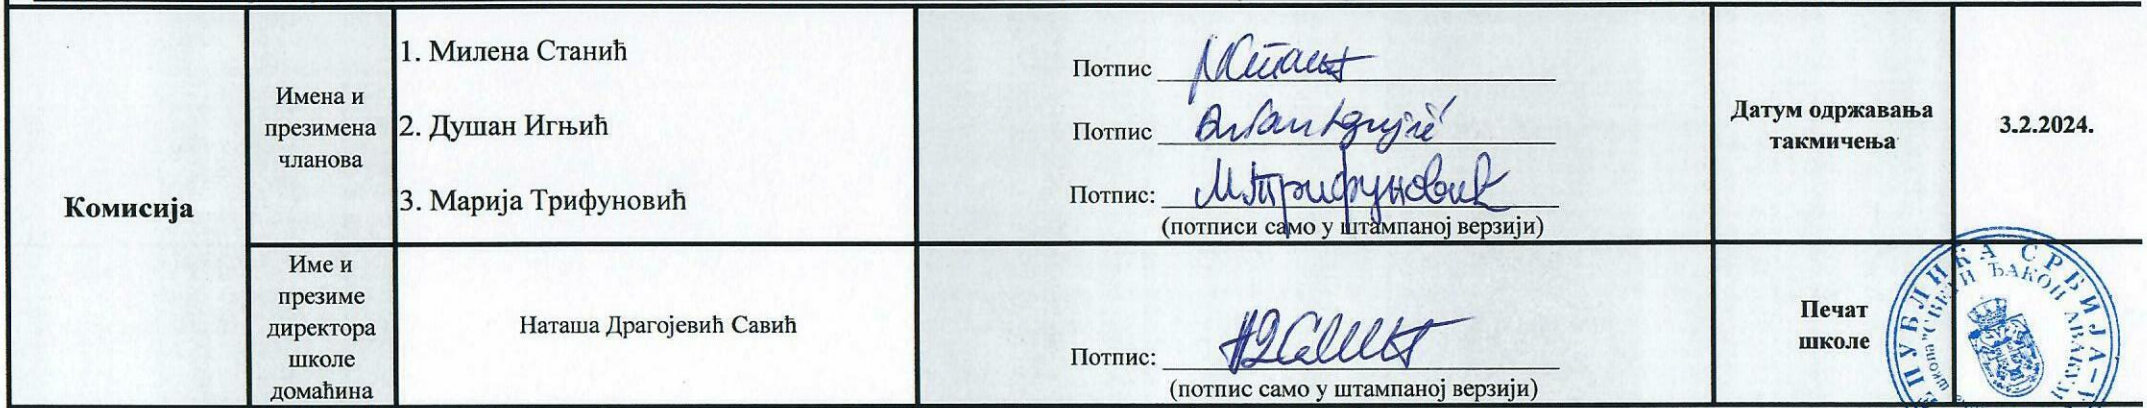 Комисија
Имена и
презимена
чланова
1. Милена Станић
2. Душан Игњић
3. Марија Трифуновић
Потпис
Потпис
Потпис: М Трифуновић
(потписи само у штампаној верзији)
Датум одржавања
такмичења
3.2.2024.
Име и
презиме
директора
школе
домаћина
Наташа Драгојевић Савић
Потпис:
(потпис само у штампаној верзији)
Печат
школе
РЕПУБЛИКА СРБИЈА
школа "СВЕТИ ЂАКОН АВАКУМ